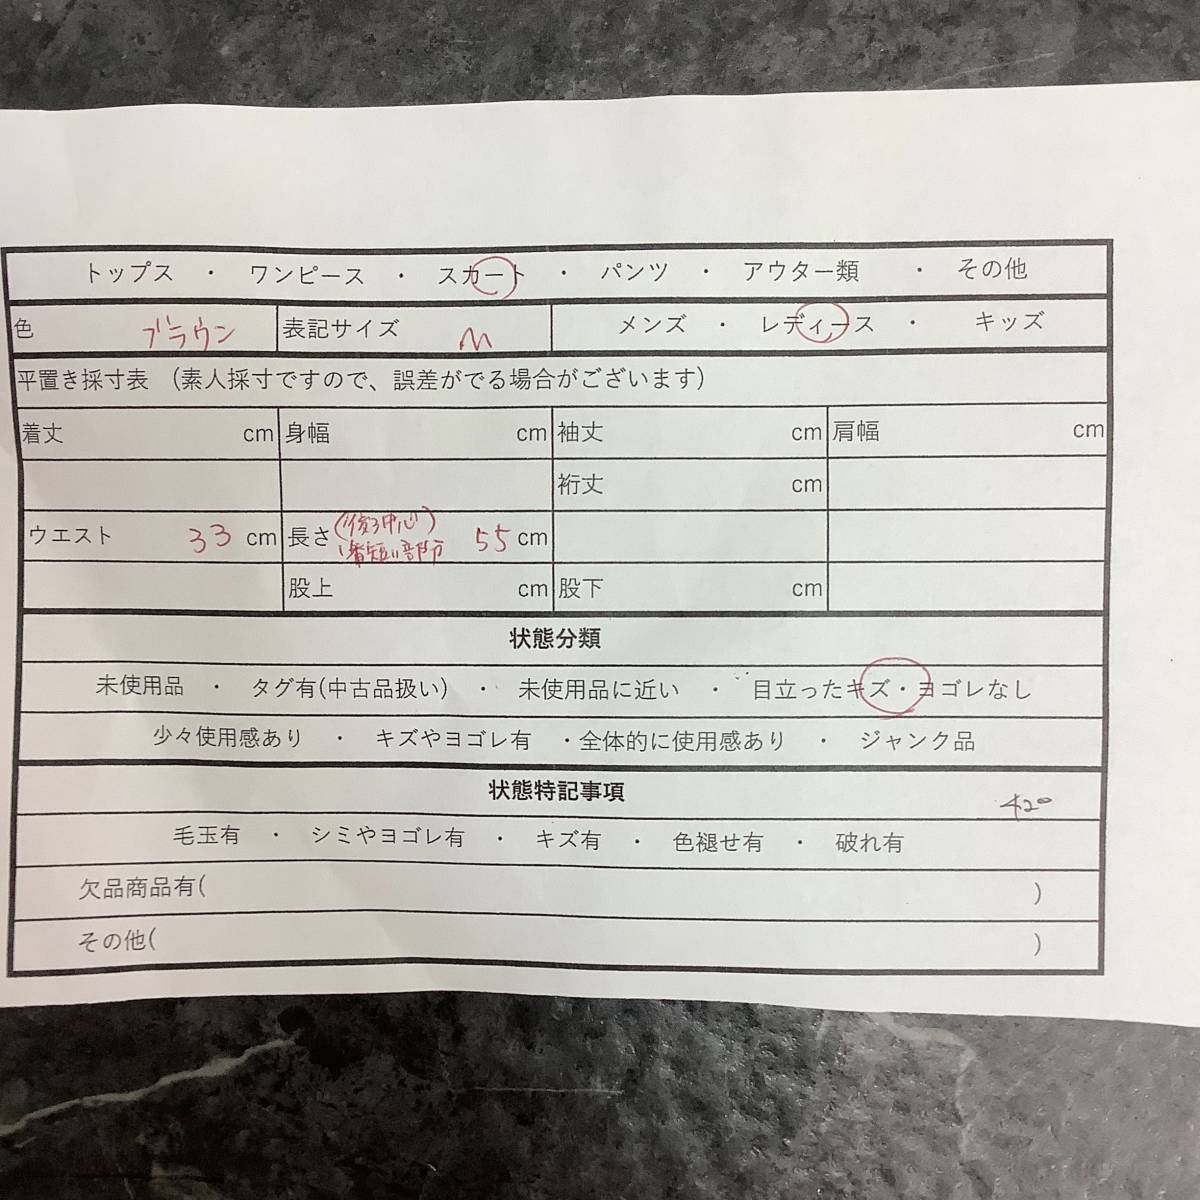 トップス ・ ワンピース ・ スカート ・ パンツ ・ アウター類 ・ その他
色 ブラウン 表記サイズ M メンズ ・ レディース ・ キッズ
平置き採寸表 (素人採寸ですので、誤差がでる場合がございます)
着丈 cm 身幅 cm 袖丈 cm 肩幅 cm
裄丈 cm
ウエスト 33 cm 長さ (後ろ中心) 1番短い部分 55 cm
股上 cm 股下 cm
状態分類
未使用品 ・ タグ有(中古品扱い) ・ 未使用品に近い ・ 目立ったキズ・ヨゴレなし
少々使用感あり ・ キズやヨゴレ有 ・全体的に使用感あり ・ ジャンク品
状態特記事項
毛玉有 ・ シミやヨゴレ有 ・ キズ有 ・ 色褪せ有 ・ 破れ有
欠品商品有( )
その他( )